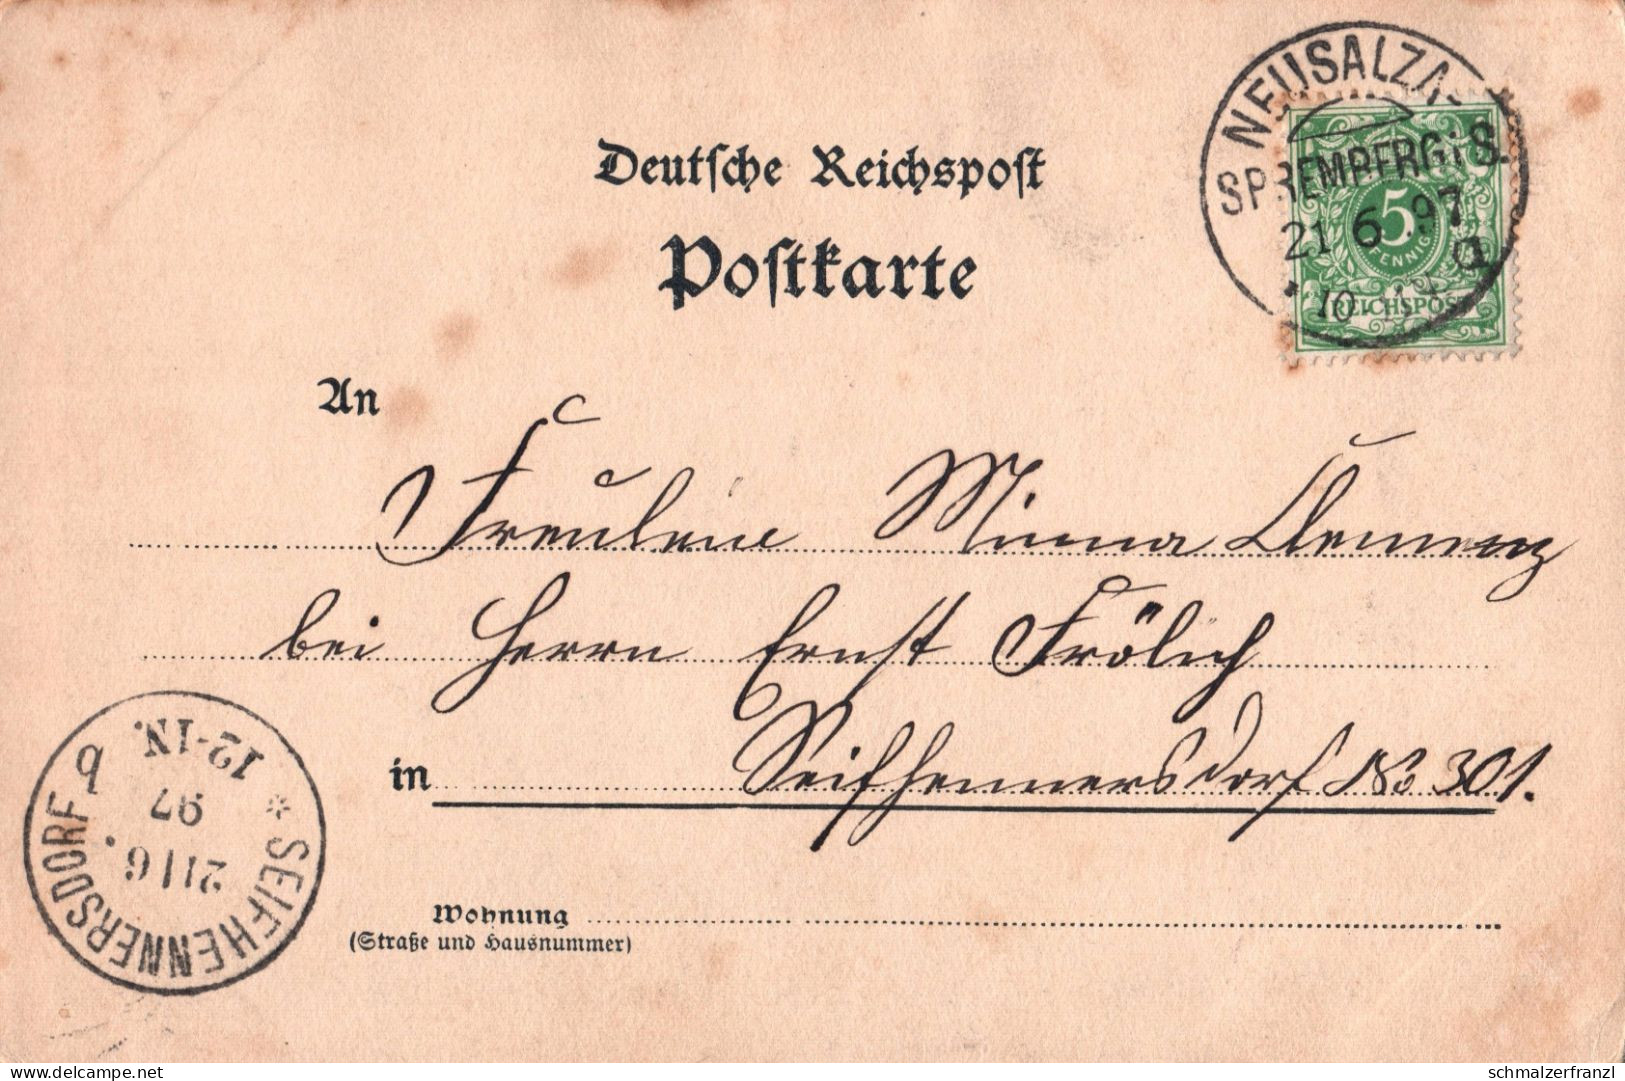 NEUSALZA-
SPREMBERG i S.
21 6 97
10
a
5
PFENNIG
REICHSPOST
Deutsche Reichspost
Postkarte
An
Fräulein Minna Clemenz
bei Herrn Ernst Frölich
in Seifhennersdorf No 301.
Wohnung
(Straße und Hausnummer)
* SEIFHENNERSDORF b
21/6.
97
12-1N.
www.delcampe.net
schmalzerfranzl